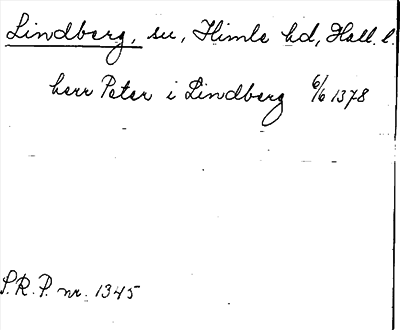 Lindberg, sn, Himle hd, Hall. l.
herr Peter i Lindberg 6/6 1378
S.R.P. nr. 1345